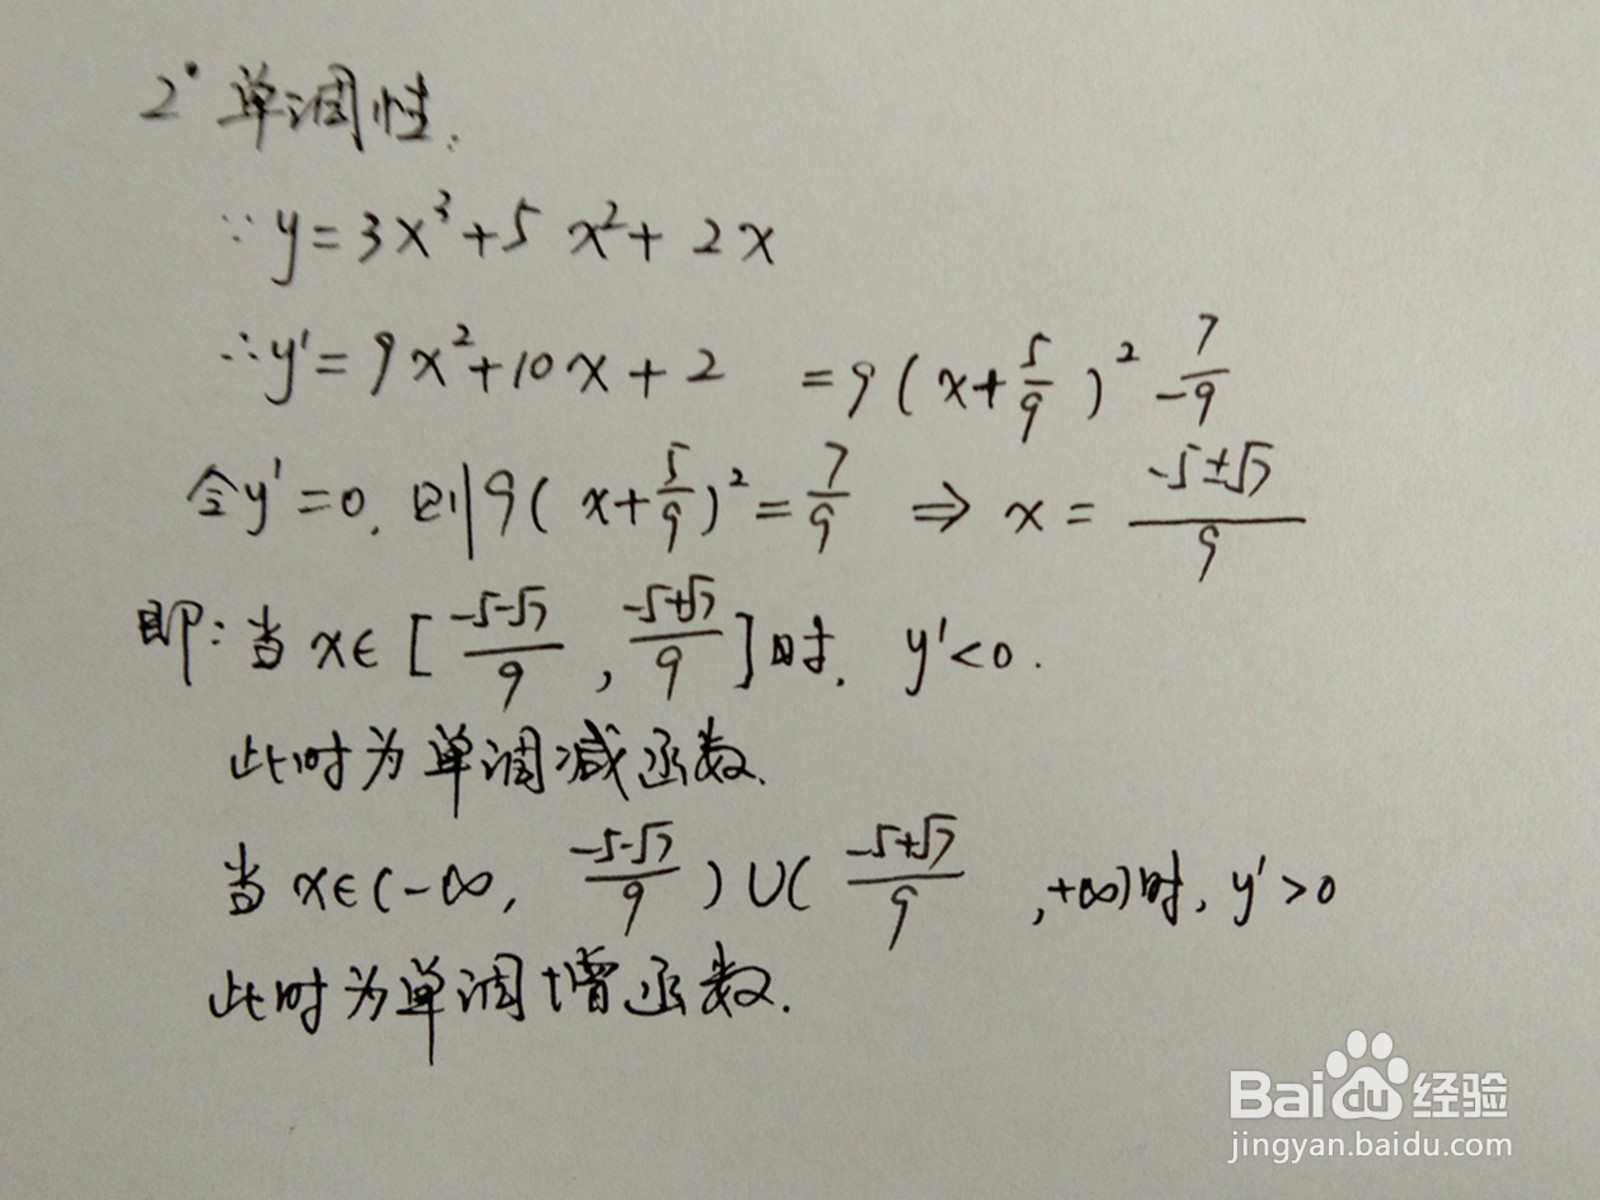 2° 单调性:
∵ y = 3x³ + 5x² + 2x
∴ y' = 9x² + 10x + 2 = 9(x + 5/9)² - 7/9
令y' = 0, 则 9(x + 5/9)² = 7/9 ⇒ x = (-5±√7)/9
即: 当 x∈[(-5-√7)/9, (-5+√7)/9]时, y' < 0.
此时为单调减函数.
当 x∈(-∞, (-5-√7)/9)∪((-5+√7)/9, +∞)时, y' > 0
此时为单调增函数.
Baidu经验
jingyan.baidu.com